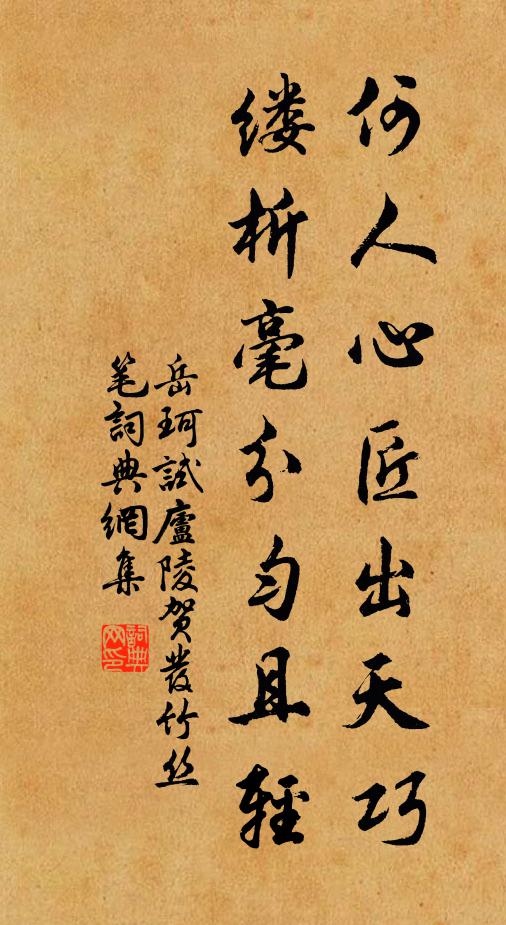 何人心匠出天巧
缕析毫分匀且輕
岳珂試廬陵賀發竹丝
笔詞典網集
詞典网印